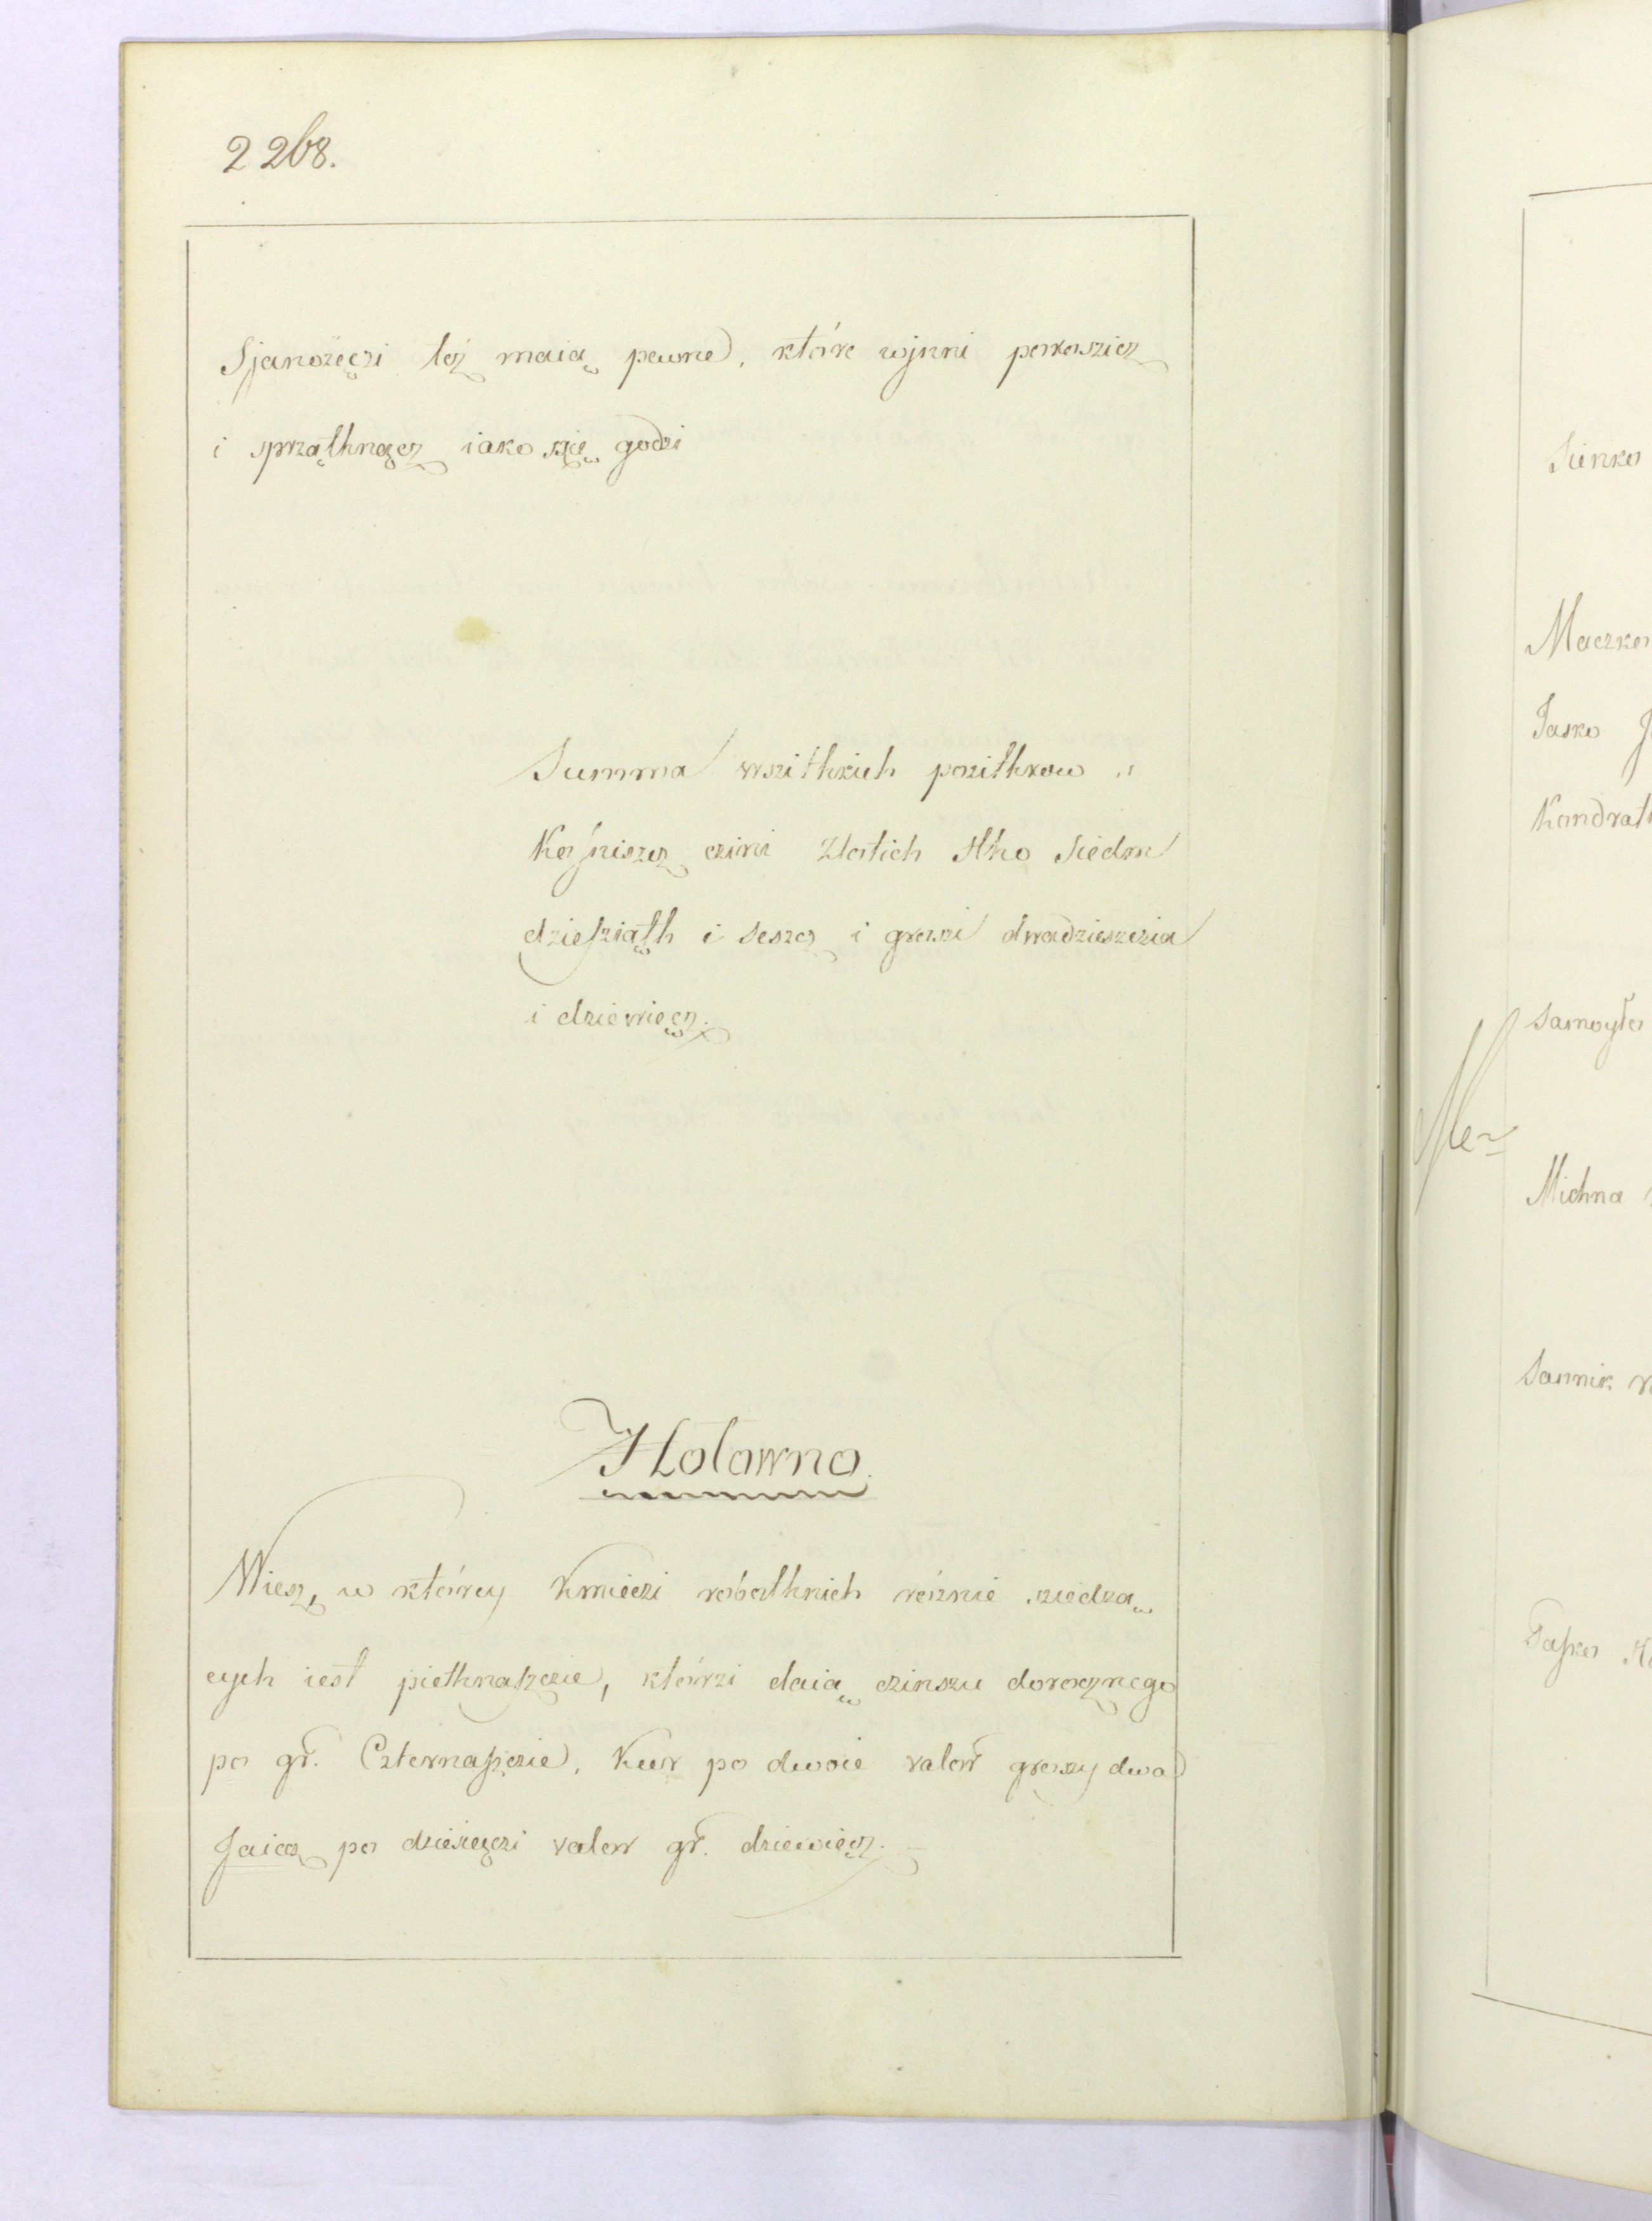 2268.
Sjanożęczi toż maią pewne, które wjnni pokosziez
i sprzątknącz iako szię godzi
Summa wszitkich pozitkow
czini Złotich stho siedm
dziesziąth i seszcz i groszi dwadzieszczia
i dziewięcz.
Hołowno.
Wiesz, w którey Kmieczi robothnich rożnie sziedzą
cych iest piethnasczie, którzi daią czinszu dorocznego
po gr. Czternasczie, Kur po dwoie valor groszy dwa
Jaiecz po dziesięczi valor gr. dziewięcz.
Sienko
Maczko
Jasko
Kondrath
Samoyło
Michna
Sannik